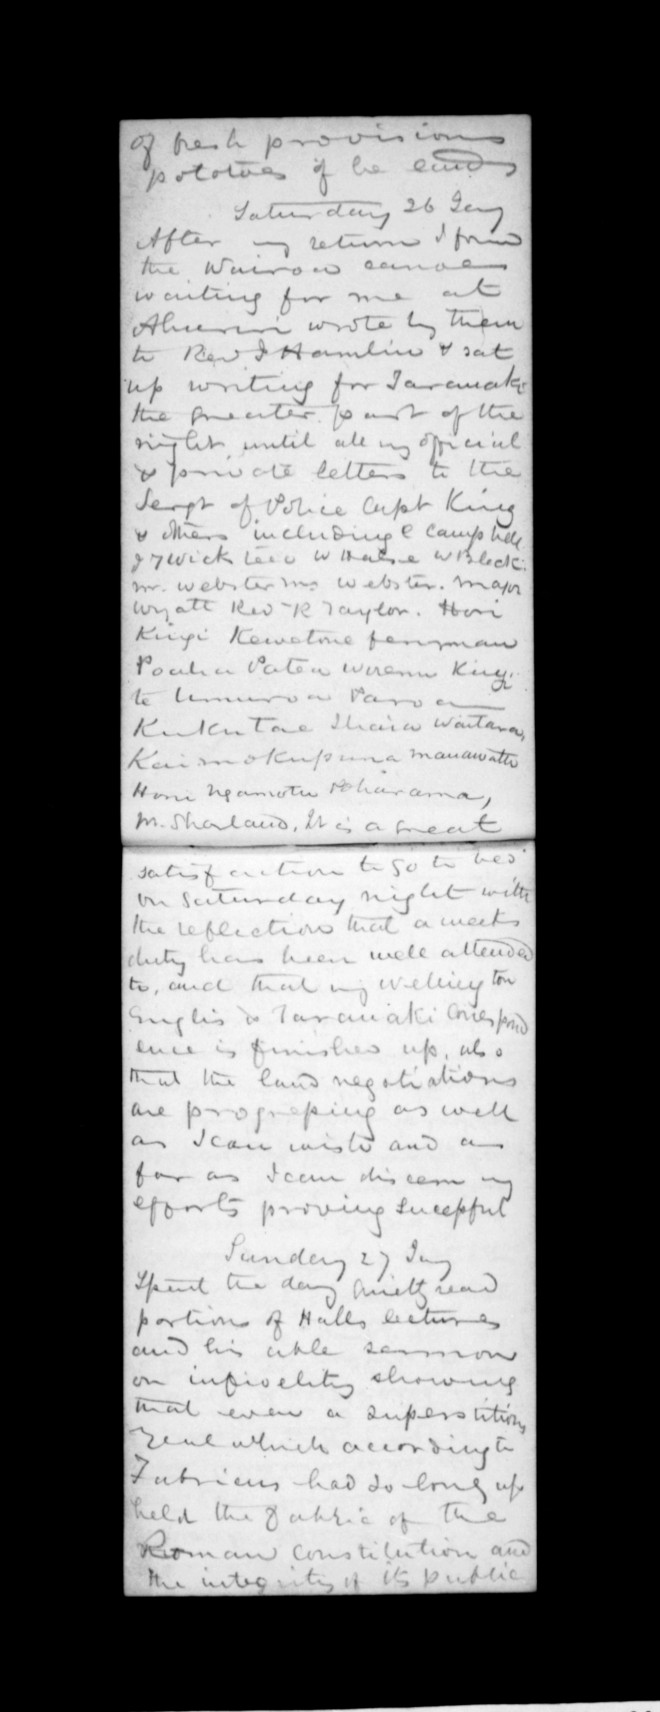 of fresh provisions
potatoes if he lands
Saturday 26 Jany
After my return I found
the Wairoa canoes
waiting for me at
Ahuriri wrote by them
to Revd J Hamlin & sat
up writing for Taranaki
the greater part of the
night until all my official
& private letters to the
Sergt of Police Capt King
& others including C Campbell
W Halse W Black
Mr. Webster Mrs Webster. Major
Wyatt Rev R Taylor. Hori
Kingi
Poaha Patea Wiremu Kingi
te
Ihaia Waitara,
Manawatu
Honi Ngamotu Poharama,
Mr. Sharland. It is a great
satisfaction to go to bed
on Saturday night with
the reflection that a weeks
duty has been well attended
to, and that my Wellington
Englis & Taranaki correspond
ence is finished up, also
that the land negotiations
are progressing as well
as I can wish and as
far as I can discern my
efforts proving sucessful
Sunday 27 Jany
Spent the day quietly read
portions of Halls lectures
and his able sermon
on infidelity showing
that even a superstitious
zeal which according to
Fabricius had so long up
held the fabric of the
Roman constitution and
the integrity of its public